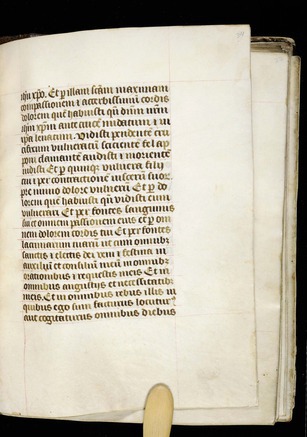 ihu xpo. Et p illam scām maximam
compassionem i acerbissimū cordis
dolorem quē habuisti qñ dñm nrm
ihm xpm ante crucē nudatum i in
ipa leuatum. Vidisti pendentē cru
cifixum vulneratū sitientē fel ap
poni clamantē audisti i morientē
uidisti Et p quinqȝ vulnera filij
tui i per contractionē viscerū suor
pre nimio dolore vulnerū Et p do
lorem quē habuisti qñ vidisti eum
vulnerari Et per fontes sanguinis
sui et omnem passionem eius et p om
nem dolorem cordis tui Et per fontes
lacrimarum tuarū ut cum omnibȝ
sanctis i electis dei veni i festina in
auxiliū et consiliū meū in omnibȝ
orationibus i requestis meis Et in
omnibus angustijs et necessitatibȝ
meis. Et in omnibus rebus illis in
quibus ego sum facturus locutur9
aut cogitaturus omnibus diebus